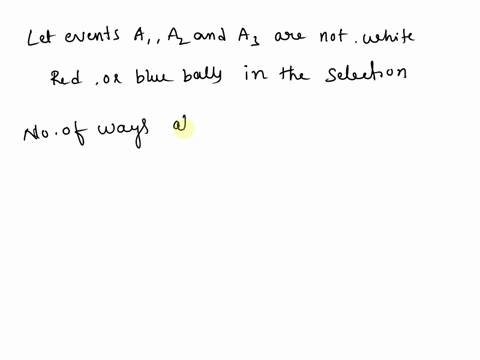 Let events A1, A2 and A3 are not. white
Red. or blue bally in the selection
No. of ways a